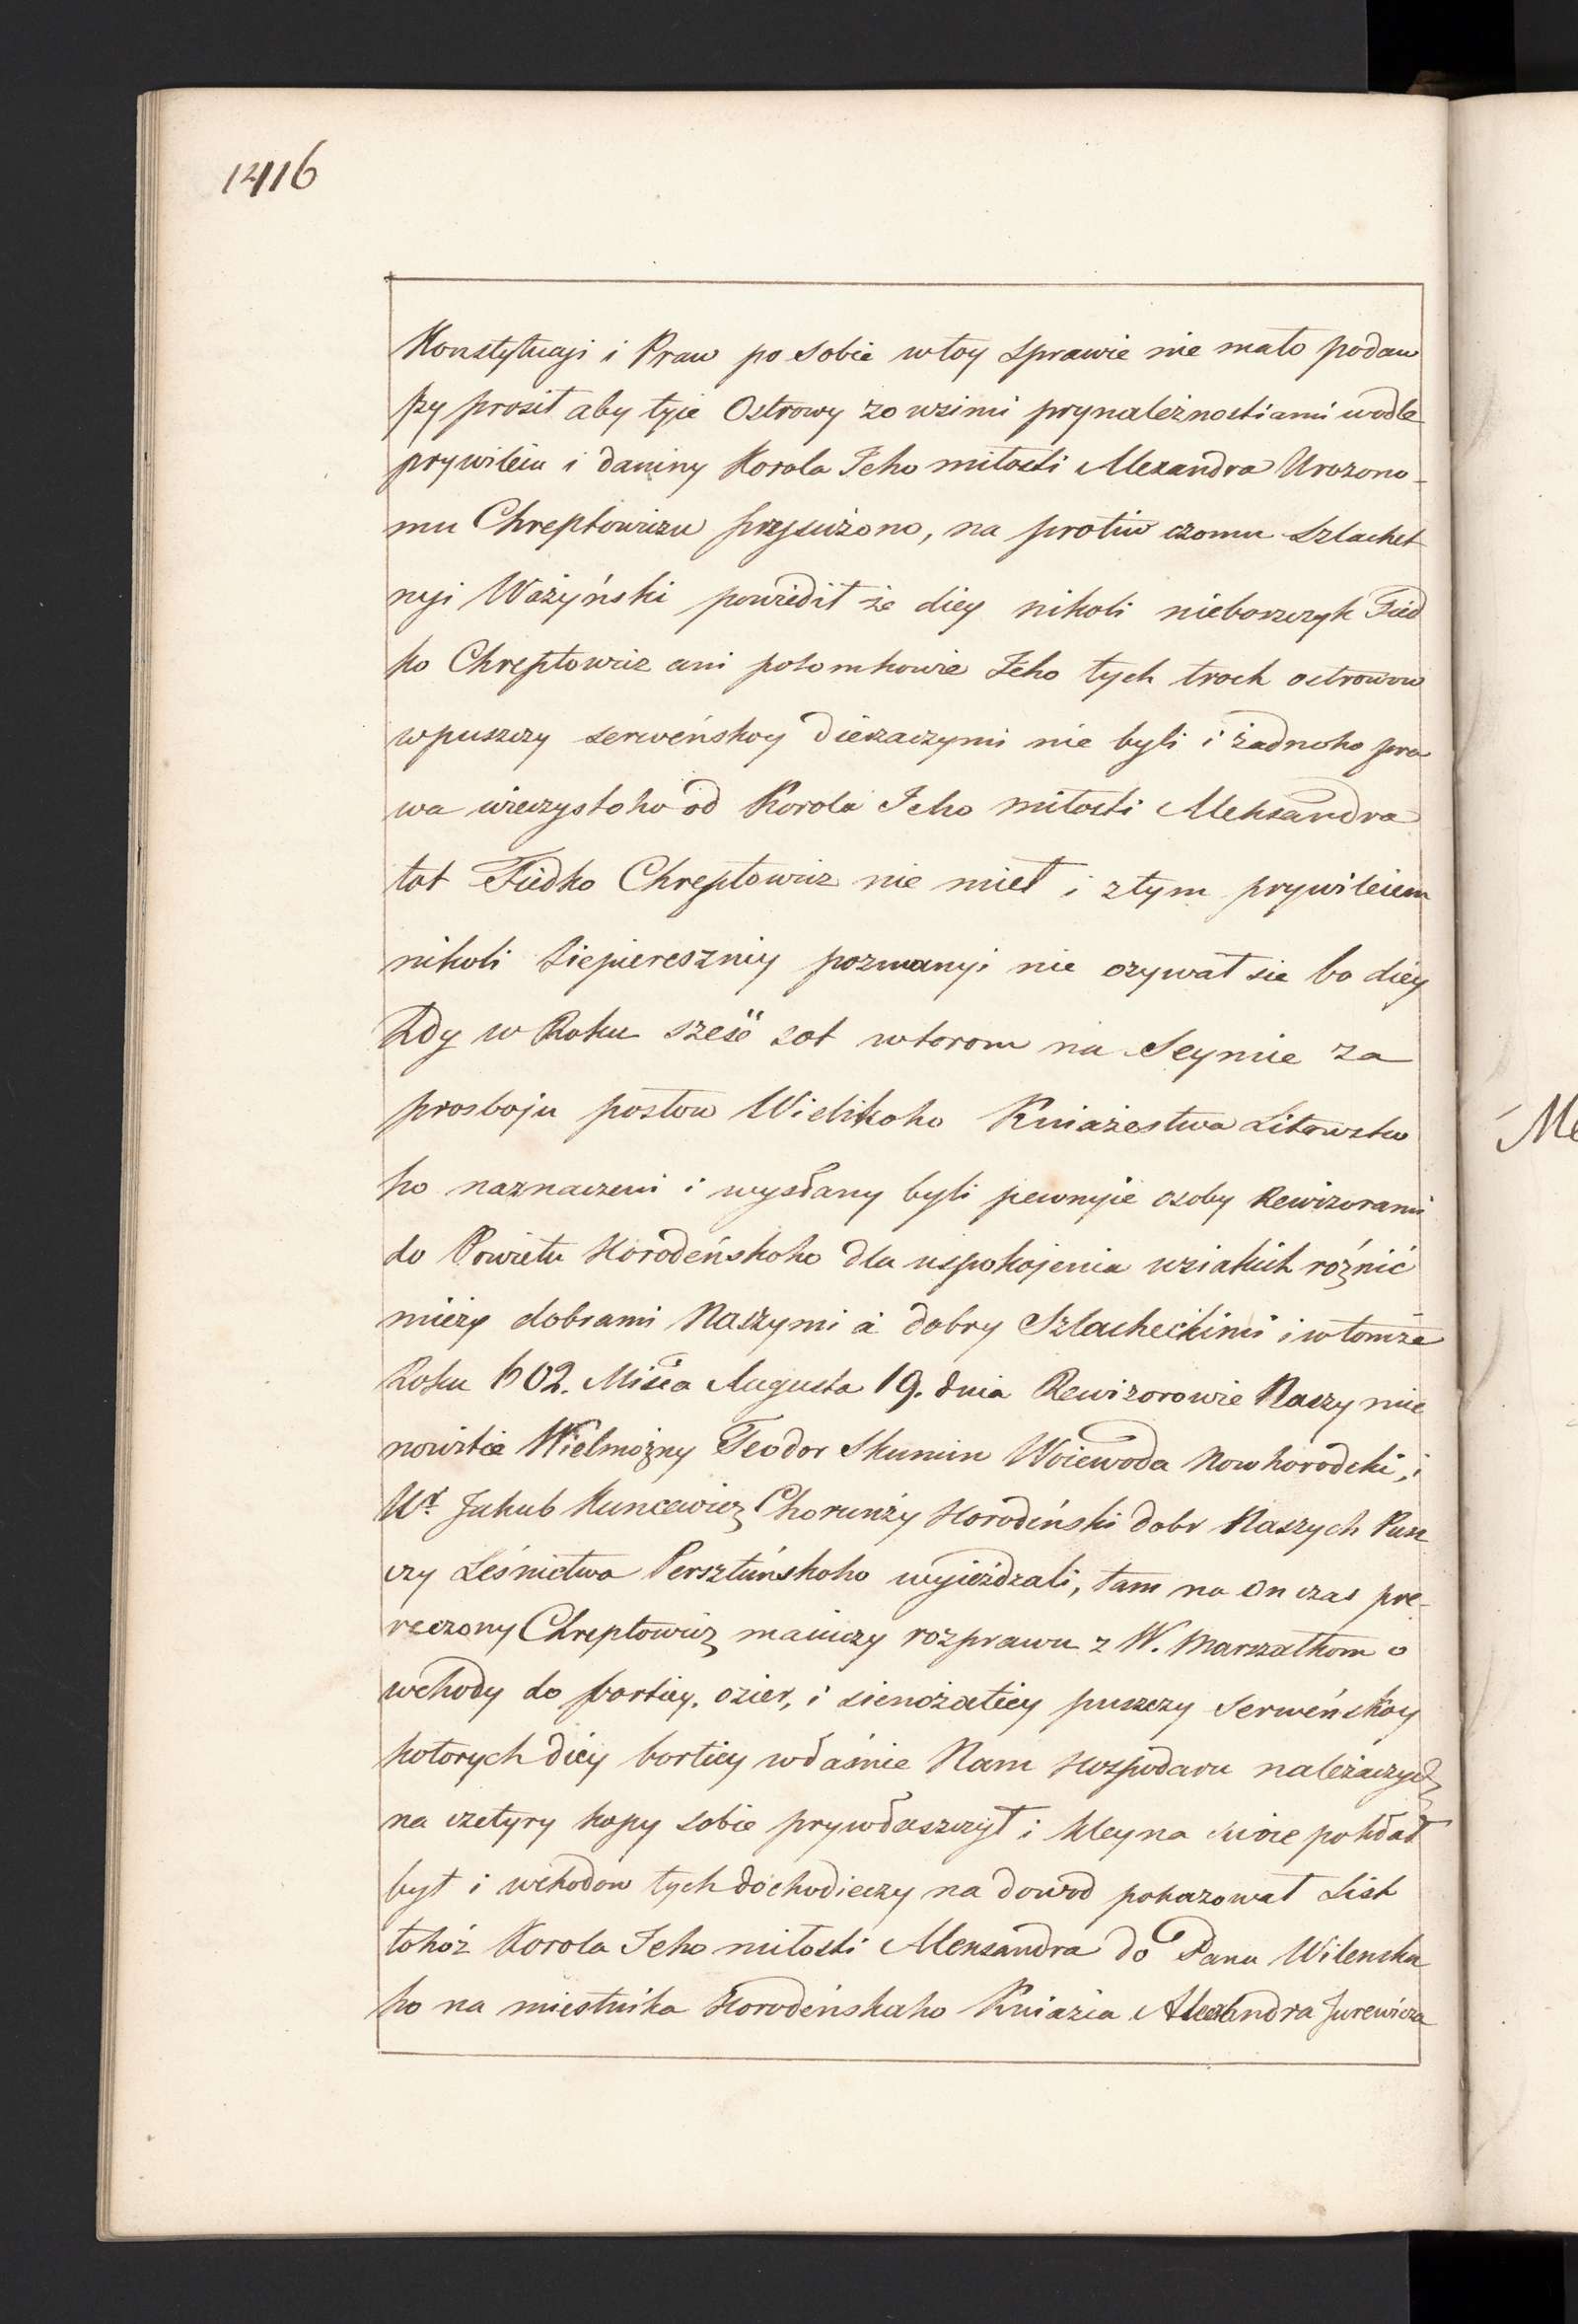 1416
Konstytucji i Praw po sobie wtoy sprawie nie mało podaw
szy prosił aby tyie Ostrowy zo wsimi prynależnostiami wodle
prywileiu i daniny Korola Jeho miłosti Alexandra Urozono-
mu Chreptowiczu przysużono, na protiw czomu Szlachet
nyi Ważyński powiedił że diey nikoli nieborszczyk Fied
ko Chreptowicz ani potomkowie Jeho tych troch ostrowow
wpuszczy serweńskoy dierzaczymi nie byli i żadnoho pra
wa wieczystoho od Korola Jeho miłosti Aleksandra
tot Fiedko Chreptowicz nie mieł i ztym prywileiem
nikoli siepiereszniy pozwanyi nie ozywał sie bo diey
Kdy w Roku szesć sot wtorom na Seymie za
prosboju posłow Wielikoho Kniażestwa Litowsko
ho naznaczeni i wysłany byli pewnyie osoby Rewizorami
do Powietu Horodeńskoho dla uspokojenia wsiakich róźnić
mieży dobrami Naszymi a dobry Szlacheckimi i wtomże
Roku 602. Misca Augusta 19. dnia Rewizorowie Naszy mie
nowitie Wielmożny Teodor Skumin Woiewoda Nowhorodcki, i
Ur. Jakub Kuncewicz Chorunży Horodeński dobr Naszych Pusz
czy Leśnictwa Persztuńskoho wyieżdzali, tam na on czas pre-
reczony Chreptowicz maiuczy rozprawu z W. Marszałkom o
wchody do bortiey, ozier, i sienożatiey puszczy Serweńskoy
kotorych diey bortiey własnie Nam Hospodaru należaczych
na czetyry kopy sobie prywłaszczył i kleyna swoie pokłał
był i wchodow tych dochodieczy na dowod pokazował List
tohóż Korola Jeho miłosti Alexsandra do Pana Wilenska
ho na miestnika Horodeńskaho Kniazia Alexandra Jurewicza